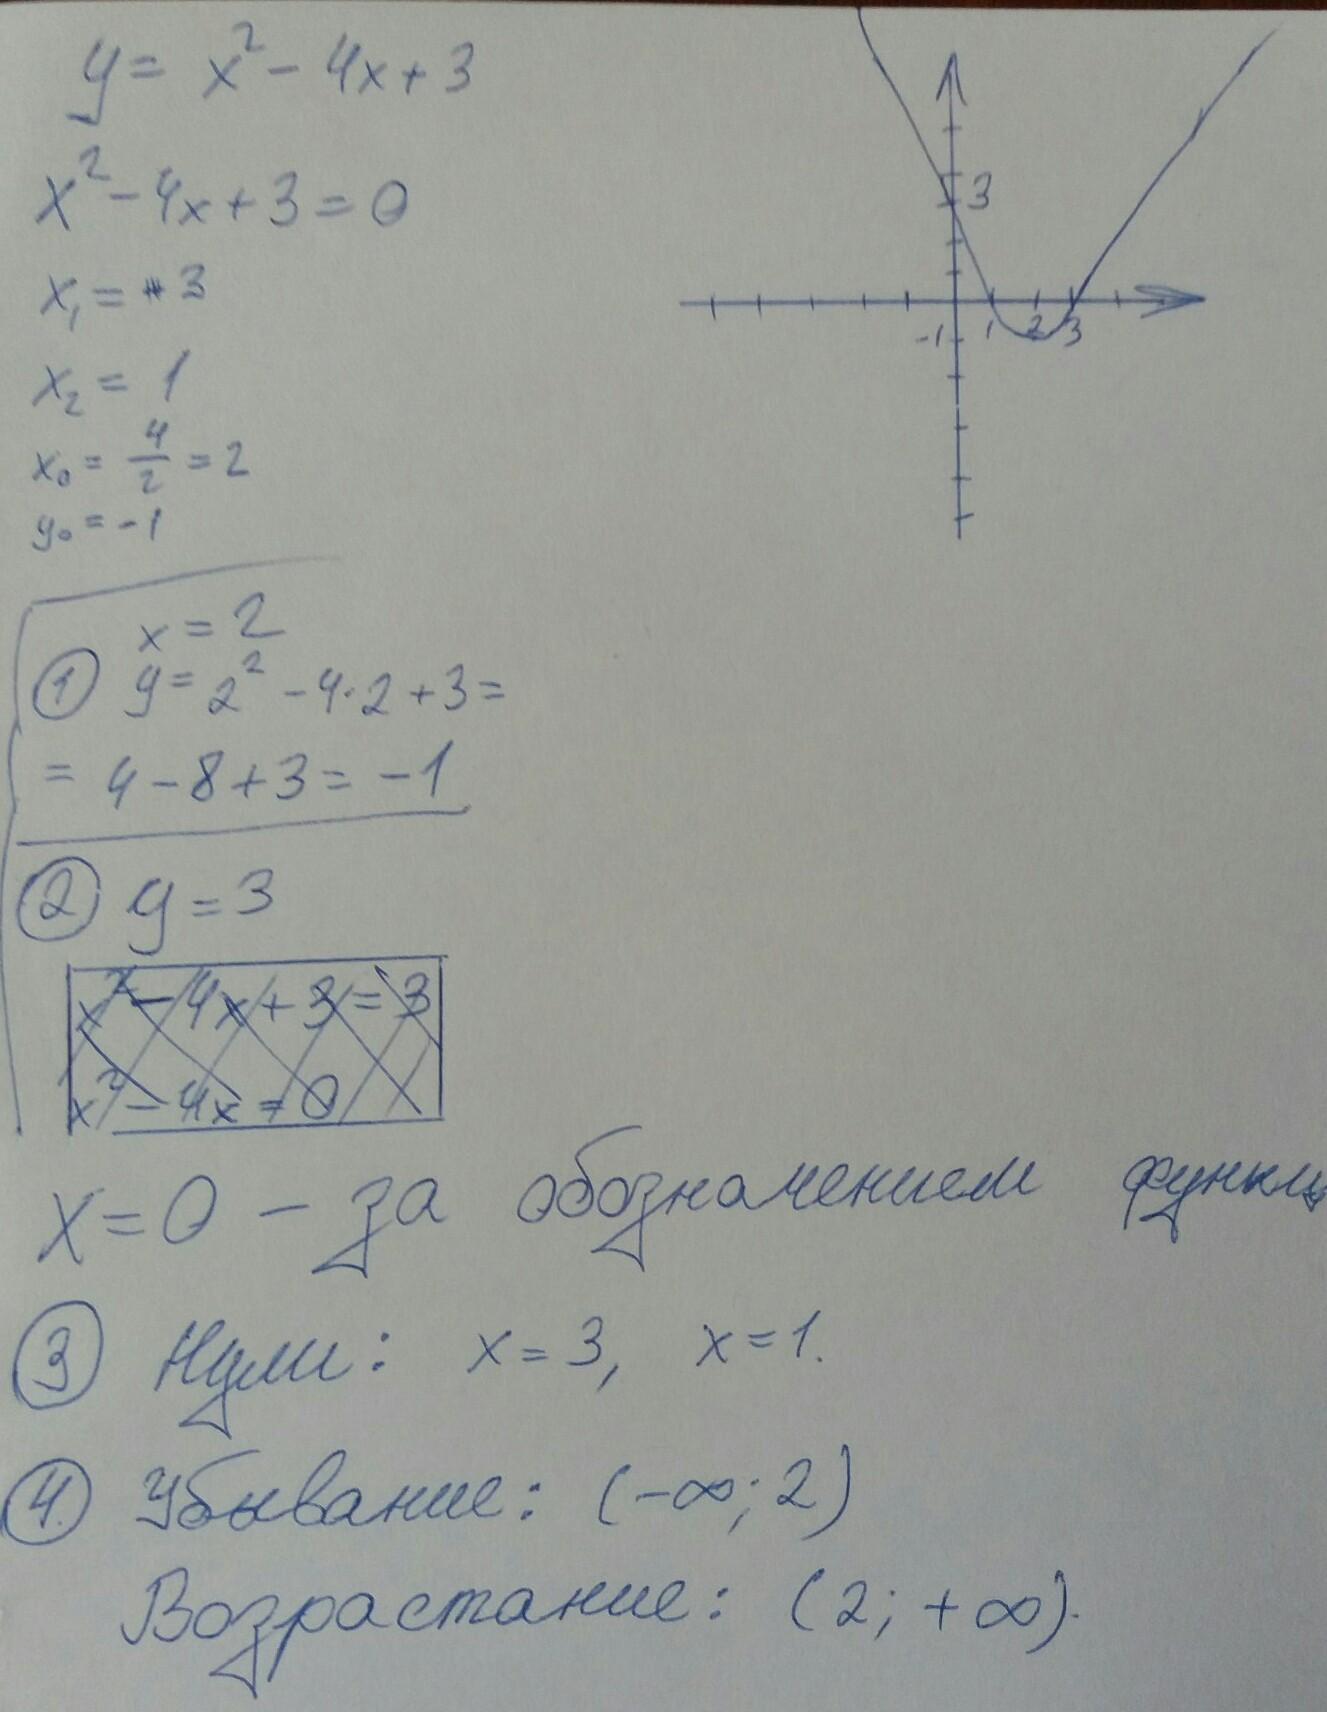 y = x² - 4x + 3
x² - 4x + 3 = 0
x₁ = 3
x₂ = 1
x₀ = 4/2 = 2
y₀ = -1
3
-1 1 2 3
x = 2
① y = 2² - 4·2 + 3 =
= 4 - 8 + 3 = -1
② y = 3
x² - 4x + 3 = 3
x² - 4x = 0
x = 0 - за обозначением функц
③ Нули: x = 3, x = 1.
④. Убывание: (-∞; 2)
Возрастание: (2; +∞).